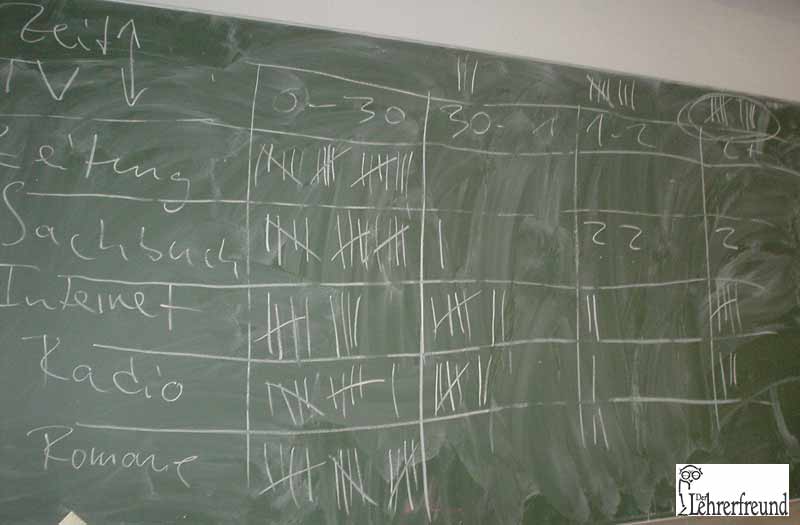 Zeit
TV 0-30 30-1 1-2 2+
Zeitung
Sachbuch 2 2 2
Internet
Radio
Romane
Der
Lehrerfreund